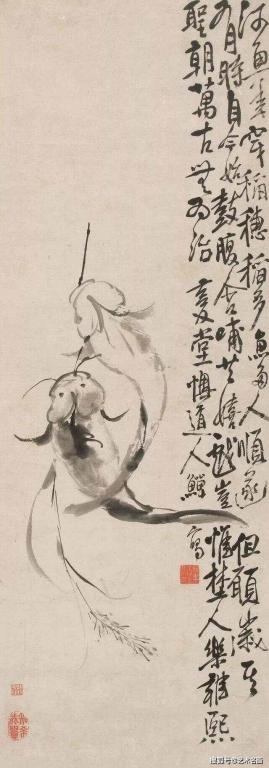 河魚美穿稻穗稻多魚多人順遂但願歲其
有時自今始鼓腹含哺共嬉戲豈惟楚人樂雍熙
聖朝萬古無為治 復堂懊道人鱓寫
搜狐号@艺术名画